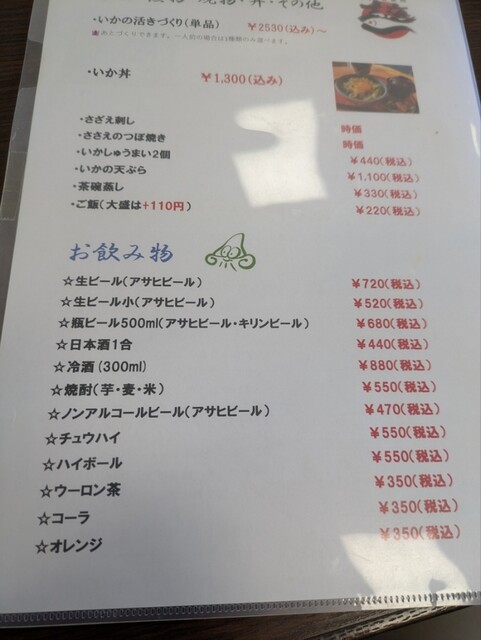 ・丼・その他
・いかの活きづくり(単品) ￥2530(込み)～
・いか丼 ￥1,300(込み)
・さざえ刺し 時価
・さざえのつぼ焼き 時価
・いかしゅうまい2個 ￥440(税込)
・いかの天ぷら ￥1,100(税込)
・茶碗蒸し ￥330(税込)
・ご飯(大盛は+110円) ￥220(税込)
お飲み物
☆生ビール(アサヒビール) ￥720(税込)
☆生ビール小(アサヒビール) ￥520(税込)
☆瓶ビール500ml(アサヒビール・キリンビール) ￥680(税込)
☆日本酒1合 ￥440(税込)
☆冷酒(300ml) ￥880(税込)
☆焼酎(芋・麦・米) ￥550(税込)
☆ノンアルコールビール(アサヒビール) ￥470(税込)
☆チュウハイ ￥550(税込)
☆ハイボール ￥550(税込)
☆ウーロン茶 ￥350(税込)
☆コーラ ￥350(税込)
☆オレンジ ￥350(税込)